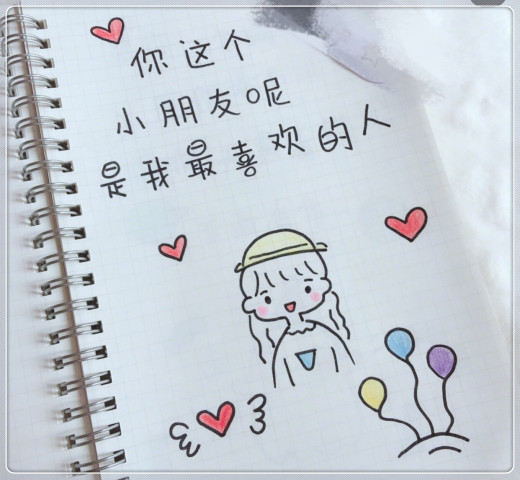 你这个
小朋友呢
是我最喜欢的人